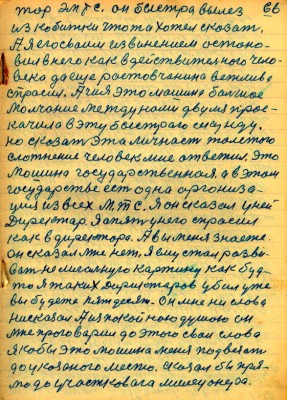 тор эмтс. он быстра вылез 66
из кобитки что та хотел сказат,
А я его свами извинением остоно-
вил внего как в действителного чело-
века да еще ростовчанина вежлива
спрасил. А чия это машина
молчание между нами двумя прос-
качила в эту быстраго секунду.
но сказат эта личнаст толстого
слотнение человек мне ответил. Это
машина государственная, а в этом
государстве ест одна оргониза-
ция из всех М.Т.С. Я он сказал у ней
Директар Я опят унего спрасил
как в директора. А вы меня знаете.
он сказал мне нет,
ват не картину как буд-
то я таких Директаров убил уже
вы будете пятдесят. Он мне ни слова
несказал А
мне проговарил до этого сваи слова
якобы это мошина меня подвезат
до указаного место. Сказал бы пря-
мо до участковага милецонера.